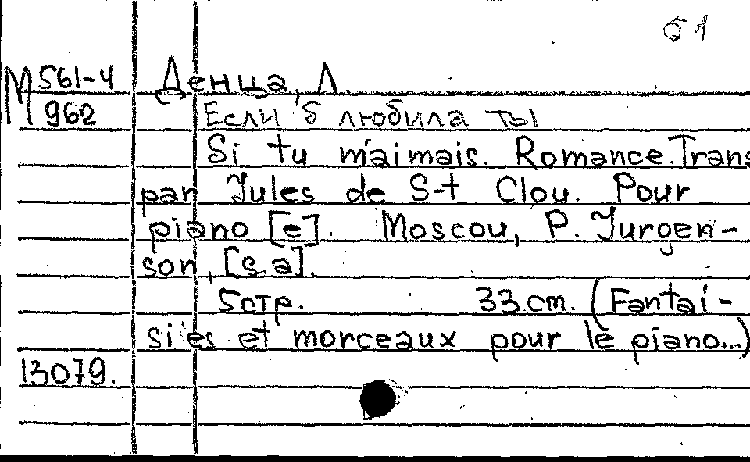 61
М 561-4 Денца, Л.
962 Если б любила ты
Si tu m'aimais. Romance. Trans
par Jules de S-t Clou. Pour
piano [e]. Moscou, P. Jurgen-
son, [s.a].
5 стр. 33 cm. (Fantai-
sies et morceaux pour le piano...)
13079.